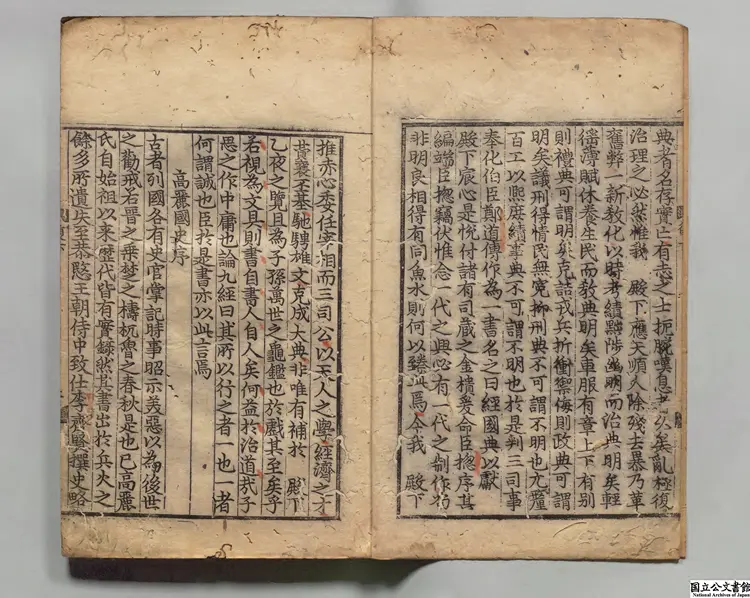 典者名存實亡有志之士扼腕嘆息者久矣亂極復
治理之必然惟我 殿下應天順人除殘去暴乃革
舊弊一新教化以時考績黜陟幽明而治典明矣輕
徭薄賦休養生民而教典明矣車服有章上下有別
則禮典可謂明矣克詰戎兵折衝禦侮則政典可謂
明矣議刑得情民無冤抑刑典不可謂不明也允釐
百工以熙庶績事典不可謂不明也於是判三司事
奉化伯臣鄭道傳作為一書名之曰經國典以獻
殿下宸心是悅付諸有司藏之金樻爰命臣摠序其
編端臣摠竊伏惟念一代之興必有一代之制作苟
非明良相得有同魚水則何以臻此焉今我 殿下
推赤心委任宰相而三司公以天人之學經濟之才
贊襄丕基馳騁雄文克成大典非唯有補於 殿下
乙夜之覽且為子孫萬世之龜鑑也於戲其至矣乎
若視為文具則書自書人自人矣何益於治道哉子
思之作中庸也論九經曰其所以行之者一也一者
何謂誠也臣於是書亦以此言焉
高麗國史序
古者列國各有史官掌記時事昭示美惡以為後世
之勸戒右晋之乘楚之檮杌魯之春秋是也已高麗
氏自始祖以來歷代皆有實錄然其書出於兵火之
餘多所遺失至恭愍王朝侍中致仕李齊賢撰史略
国立公文書館
National Archives of Japan